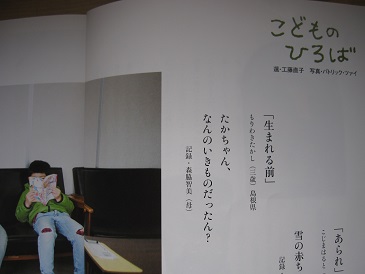 こどものひろば
選・工藤直子　写真・パトリック・ファイ
「生まれる前」
もりわきたかし（三歳）島根県
たかちゃん、
なんのいきものだったん？
記録・森脇智美（母）
「あられ」
こじまはると
雪の赤ち
記録・